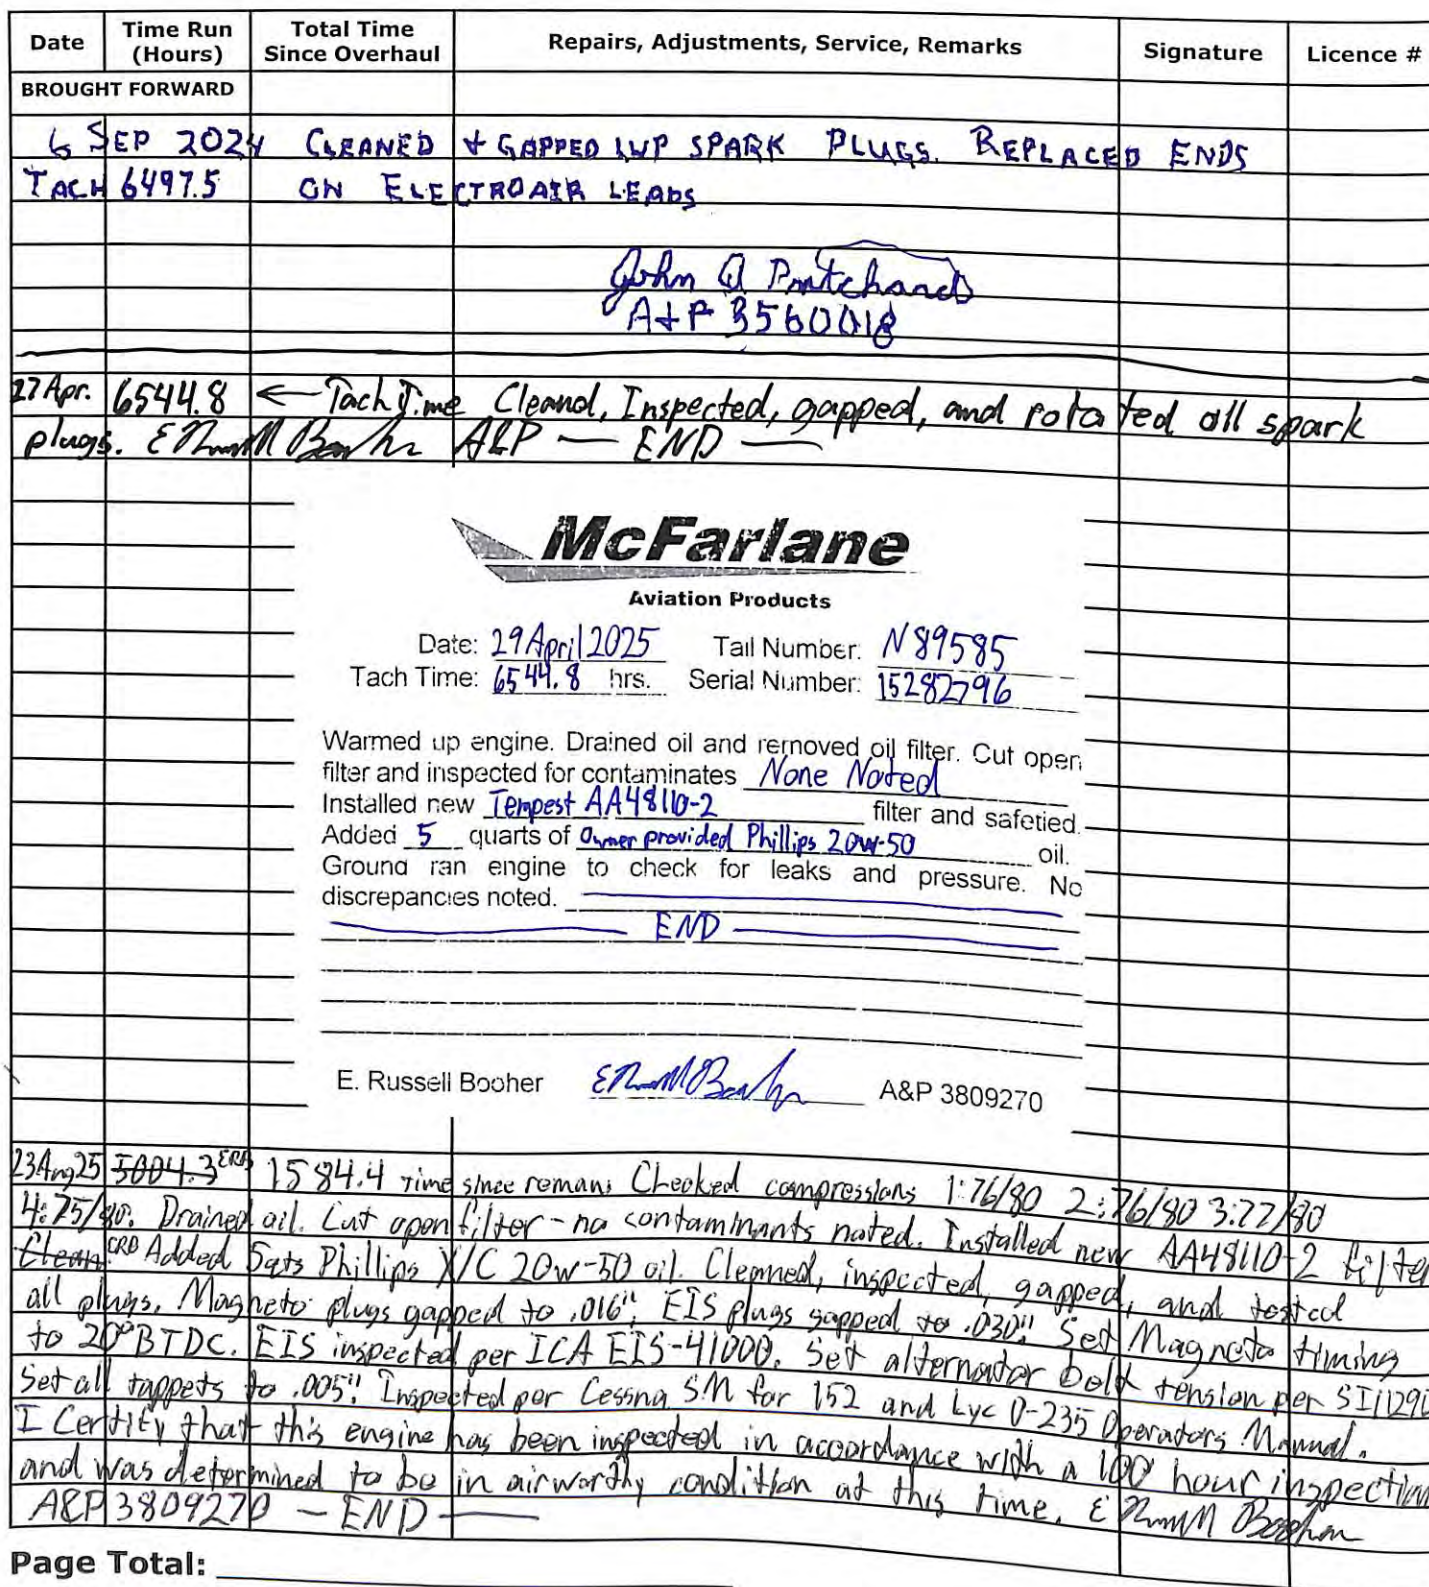 Date Time Run (Hours) Total Time Since Overhaul Repairs, Adjustments, Service, Remarks Signature Licence #
BROUGHT FORWARD
6 SEP 2024 CLEANED + GAPPED LWP SPARK PLUGS. REPLACED ENDS
TACH 6497.5 ON ELECTROAIR LEADS
John Q Pritchard
A+P 3560018
27 Apr. 6544.8 ← Tach Time Cleand, Inspected, gapped, and rotated all spark
plugs. A&P — END —
McFarlane
Aviation Products
Date: 29 April 2025 Tail Number: N89585
Tach Time: 6544.8 hrs. Serial Number: 15282796
Warmed up engine. Drained oil and removed oil filter. Cut open
filter and inspected for contaminates None Noted
Installed new Tempest AA48110-2 filter and safetied.
Added 5 quarts of Owner provided Phillips 20w-50 oil.
Ground ran engine to check for leaks and pressure. No
discrepancies noted.
END
E. Russell Booher A&P 3809270
23Aug25 5004.3 ERB 1584.4 Time since reman; Checked compressions 1:76/80 2:76/80 3:77/80
4:75/80. Drained oil. Cut open filter - no contaminants noted. Installed new AA48110-2 filter
Clean ERB Added 5qts Phillips X/C 20w-50 oil. Cleaned, inspected, gapped, and tested
all plugs. Magneto plugs gapped to .016"; EIS plugs gapped to .030". Set Magneto timing
to 20° BTDC. EIS inspected per ICA EIS-41000. Set alternator belt tension per SI1129
Set all tappets to .005". Inspected per Cessna SM for 152 and Lyc O-235 Operators Manual.
I Certify that this engine has been inspected in accordance with a 100 hour inspection
and was determined to be in airworthy condition at this time.
A&P 3809270 — END —
Page Total: